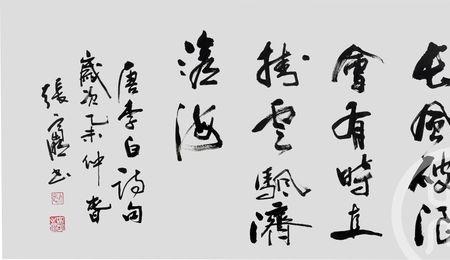 長風破浪
會有時直
掛雲颿濟
滄海
唐李白詩句
歲次乙未仲春
張
書